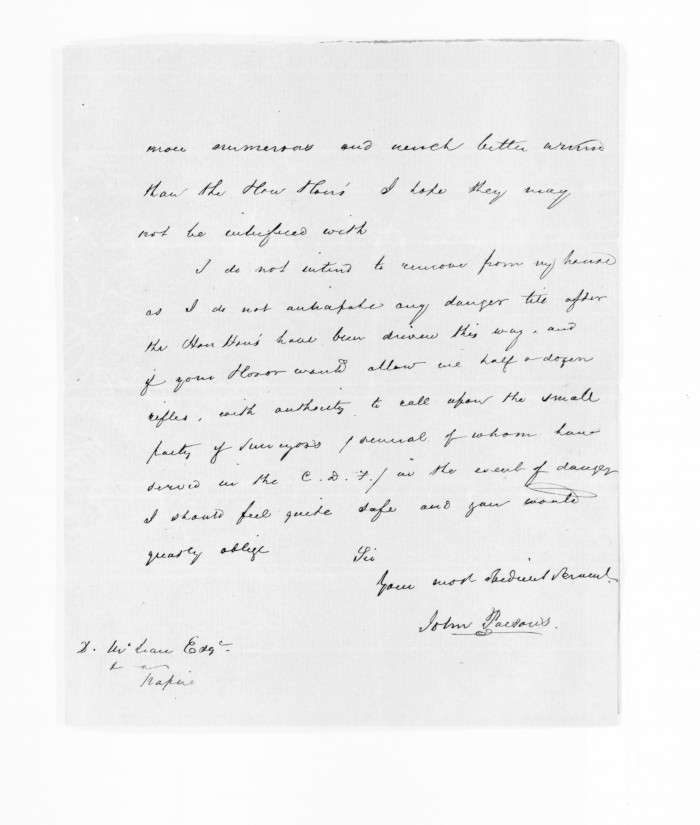 more numerous and much better armed
than the Hau Hau's I hope they may
not be interfered with
I do not intend to remove from my house
as I do not anticipate any danger till after
the Hau Hau's have been driven this way, and
if your Honor would allow me half a dozen
rifles, with authority to call upon the small
party of Surveyors / several of whom have
served in the C.D.F./ in the event of danger
I should feel quite safe and you would
greatly oblige
Sir
Your most obedient Servant.
John Parsons.
D. McLean Esqr.
Napier